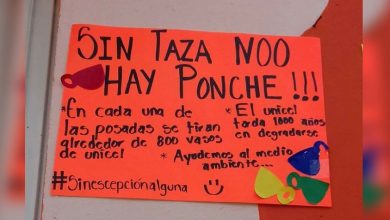 SIN TAZA NOO
HAY PONCHE !!!
*En cada una de
las posadas se tiran
alrededor de 800 vasos
de unicel
* El unicel
tarda 1000 años
en degradarse
* Ayudemos al medio
ambiente...
#Sinescepcionalguna